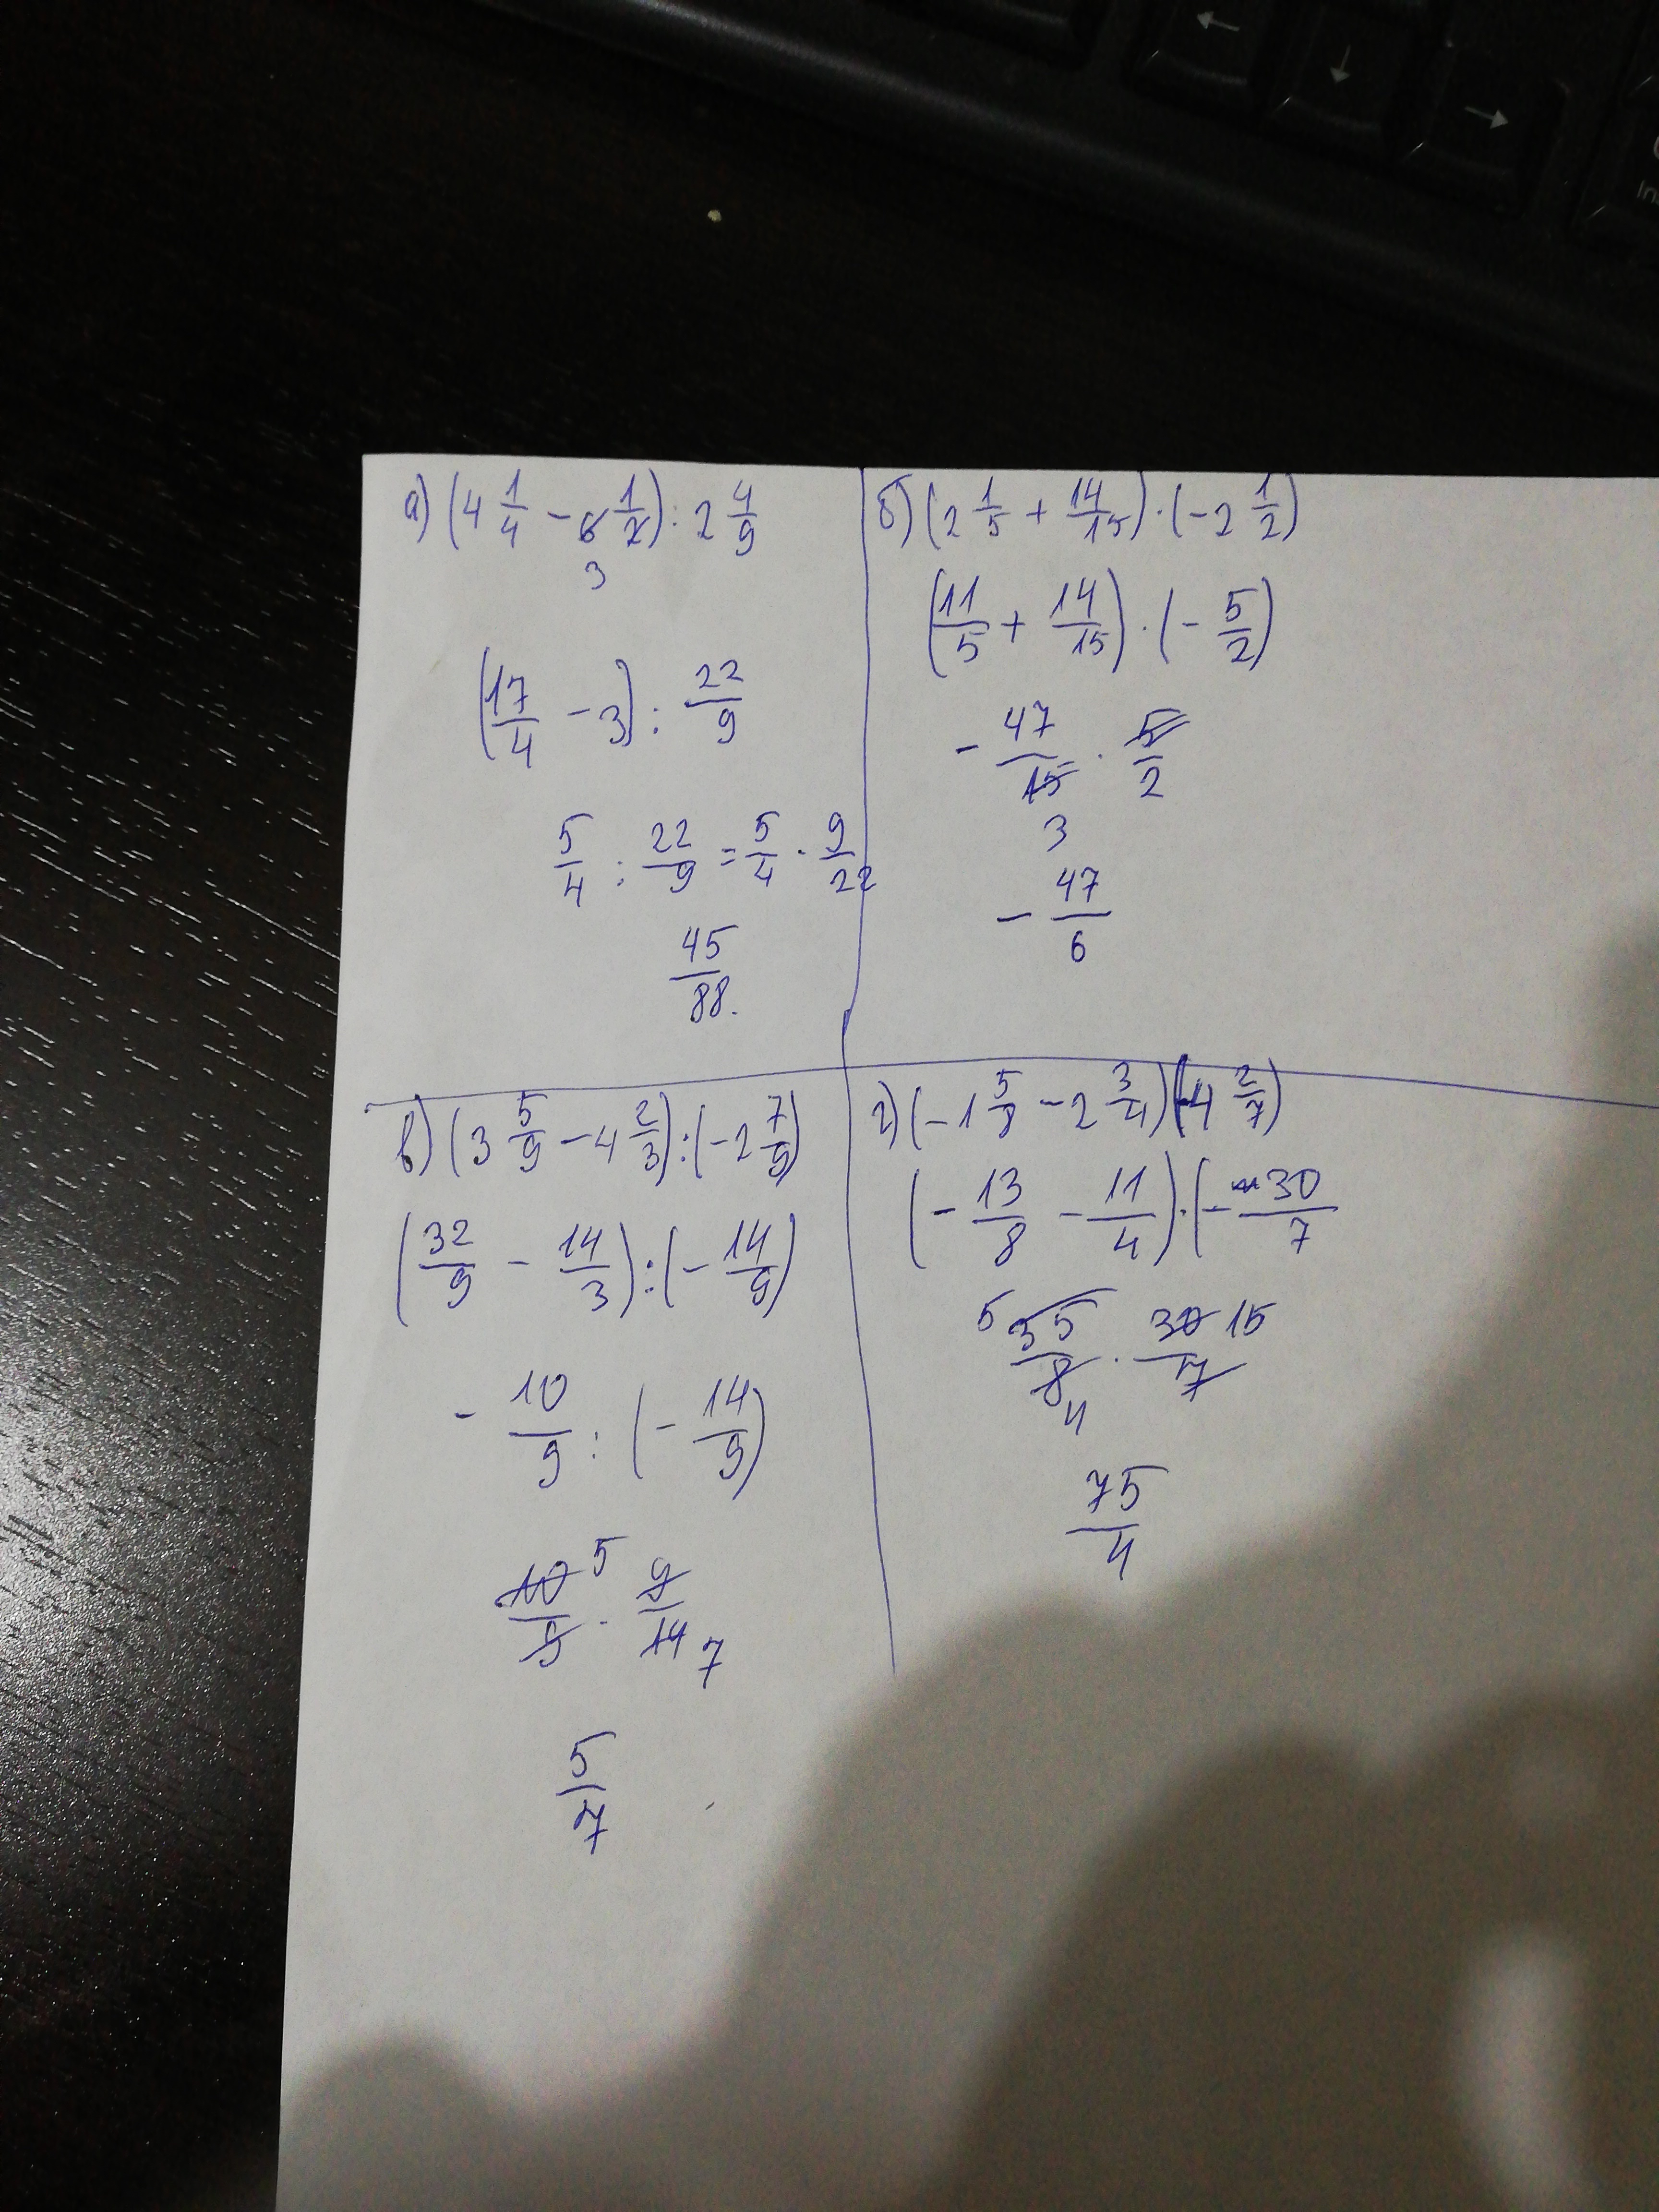 а) (4 1/4 - 6 1/2) : 2 4/9
3
(17/4 - 3) : 22/9
5/4 : 22/9 = 5/4 · 9/22
45/88.
б) (2 1/5 + 14/15) · (-2 1/2)
(11/5 + 14/15) · (- 5/2)
- 47/15 · 5/2
3
- 47/6
в) (3 5/9 - 4 2/3) : (-2 7/9)
(32/9 - 14/3) : (- 14/9)
- 10/9 : (- 14/9)
10/9 5 · 9/14 7
5/7
г) (-1 5/8 - 2 3/4) (-4 2/7)
(- 13/8 - 11/4) · (- 30/7
5 35/8 · 30/7 15
4
75/4
←
↓
→